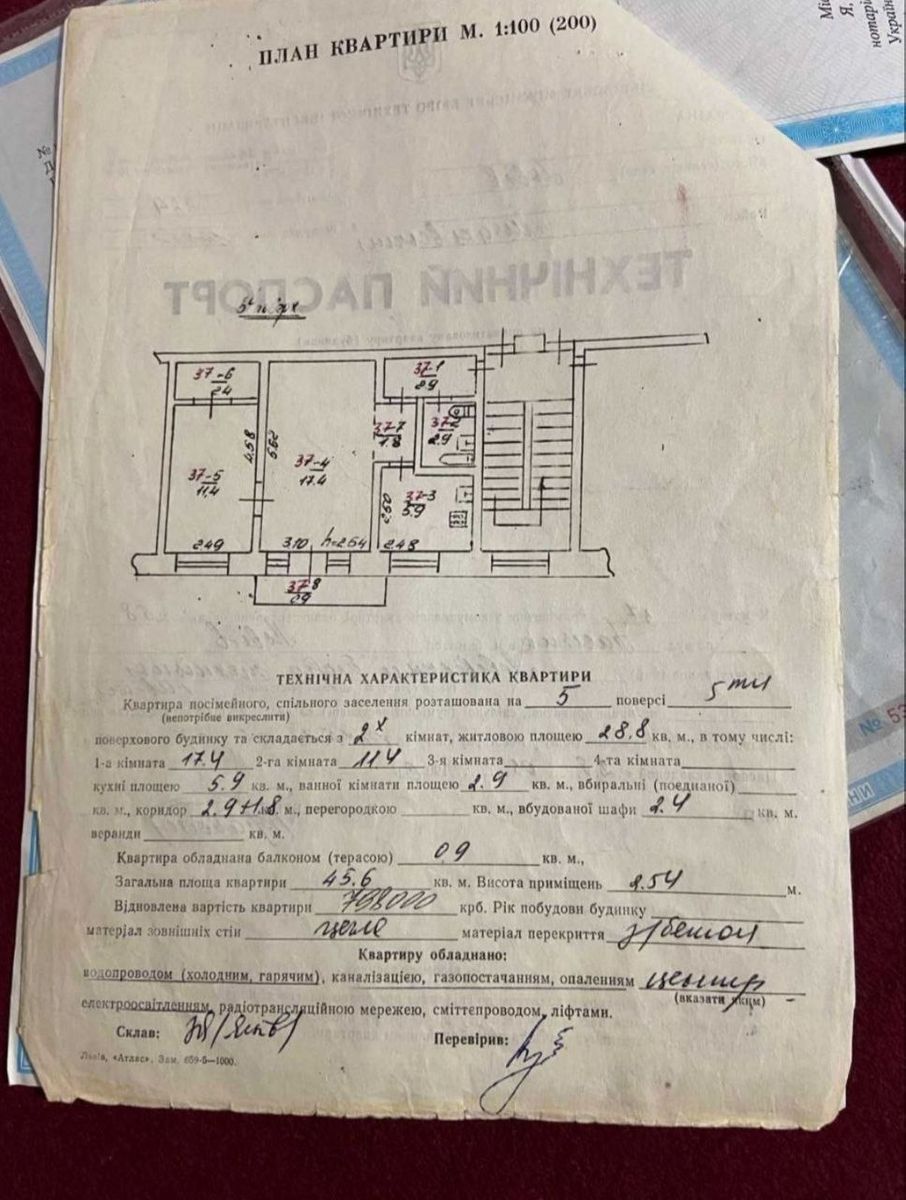 ПЛАН КВАРТИРИ М. 1:100 (200)
ТЕХНІЧНИЙ ПАСПОРТ
37-6
2.4
37-1
2.9
37-7
1.8
37-2
2.9
4.58
5.62
37-5
11.4
37-4
17.4
37-3
5.9
2.50
2.49
3.10
h=2.54
2.48
37-8
0.9
ТЕХНІЧНА ХАРАКТЕРИСТИКА КВАРТИРИ
Квартира посімейного, спільного заселення розташована на 5 поверсі 5ти
(непотрібне викреслити)
поверхового будинку та складається з 2х кімнат, житловою площею 28,8 кв. м., в тому числі:
1-а кімната 17.4 2-га кімната 11.4 3-я кімната 4-та кімната
кухні площею 5.9 кв. м., ванної кімнати площею 2.9 кв. м., вбиральні (поєднаної)
кв. м., коридор 2.9+1.8 м., перегородкою кв. м., вбудованої шафи 2.4 кв. м.
веранди кв. м.
Квартира обладнана балконом (терасою) 0.9 кв. м.,
Загальна площа квартири 45.6 кв. м. Висота приміщень 2.54 м.
Відновлена вартість квартири 798000 крб. Рік побудови будинку
матеріал зовнішніх стін цегла матеріал перекриття з/бетон
Квартиру обладнано:
водопроводом (холодним, гарячим), каналізацією, газопостачанням, опаленням центр
(вказати яким)
електроосвітленням, радіотрансляційною мережею, сміттєпроводом, ліфтами.
Склав: Перевірив:
Львів, «Атлас». Зам. 659-5—1000.
№
Я,
нотарі
Україн
№ 53